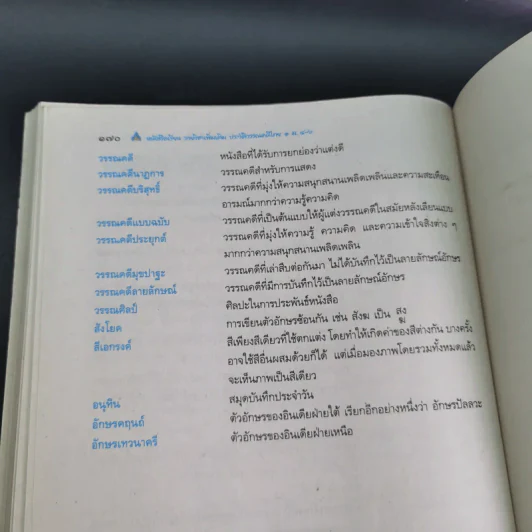 ๑๗๐ หนังสือเรียน รายวิชาเพิ่มเติม ประวัติวรรณคดีไทย ๑ ม. ๔-๖
วรรณคดี หนังสือที่ได้รับการยกย่องว่าแต่งดี
วรรณคดีนาฏการ วรรณคดีสำหรับการแสดง
วรรณคดีบริสุทธิ์ วรรณคดีที่มุ่งให้ความสนุกสนานเพลิดเพลินและความสะเทือน
อารมณ์มากกว่าความรู้ความคิด
วรรณคดีแบบฉบับ วรรณคดีที่เป็นต้นแบบให้ผู้แต่งวรรณคดีในสมัยหลังเลียนแบบ
วรรณคดีประยุกต์ วรรณคดีที่มุ่งให้ความรู้ ความคิด และความเข้าใจสิ่งต่าง ๆ
มากกว่าความสนุกสนานเพลิดเพลิน
วรรณคดีมุขปาฐะ วรรณคดีที่เล่าสืบต่อกันมา ไม่ได้บันทึกไว้เป็นลายลักษณ์อักษร
วรรณคดีลายลักษณ์ วรรณคดีที่มีการบันทึกไว้เป็นลายลักษณ์อักษร
วรรณศิลป์ ศิลปะในการประพันธ์หนังสือ
สังโยค การเขียนตัวอักษรซ้อนกัน เช่น สังฆ เป็น สงฺฆ
สีเอกรงค์ สีเพียงสีเดียวที่ใช้ตกแต่ง โดยทำให้เกิดค่าของสีต่างกัน บางครั้ง
อาจใช้สีอื่นผสมด้วยก็ได้ แต่เมื่อมองภาพโดยรวมทั้งหมดแล้ว
จะเห็นภาพเป็นสีเดียว
อนุทิน สมุดบันทึกประจำวัน
อักษรคฤนถ์ ตัวอักษรของอินเดียฝ่ายใต้ เรียกอีกอย่างหนึ่งว่า อักษรปัลลวะ
อักษรเทวนาครี ตัวอักษรของอินเดียฝ่ายเหนือ